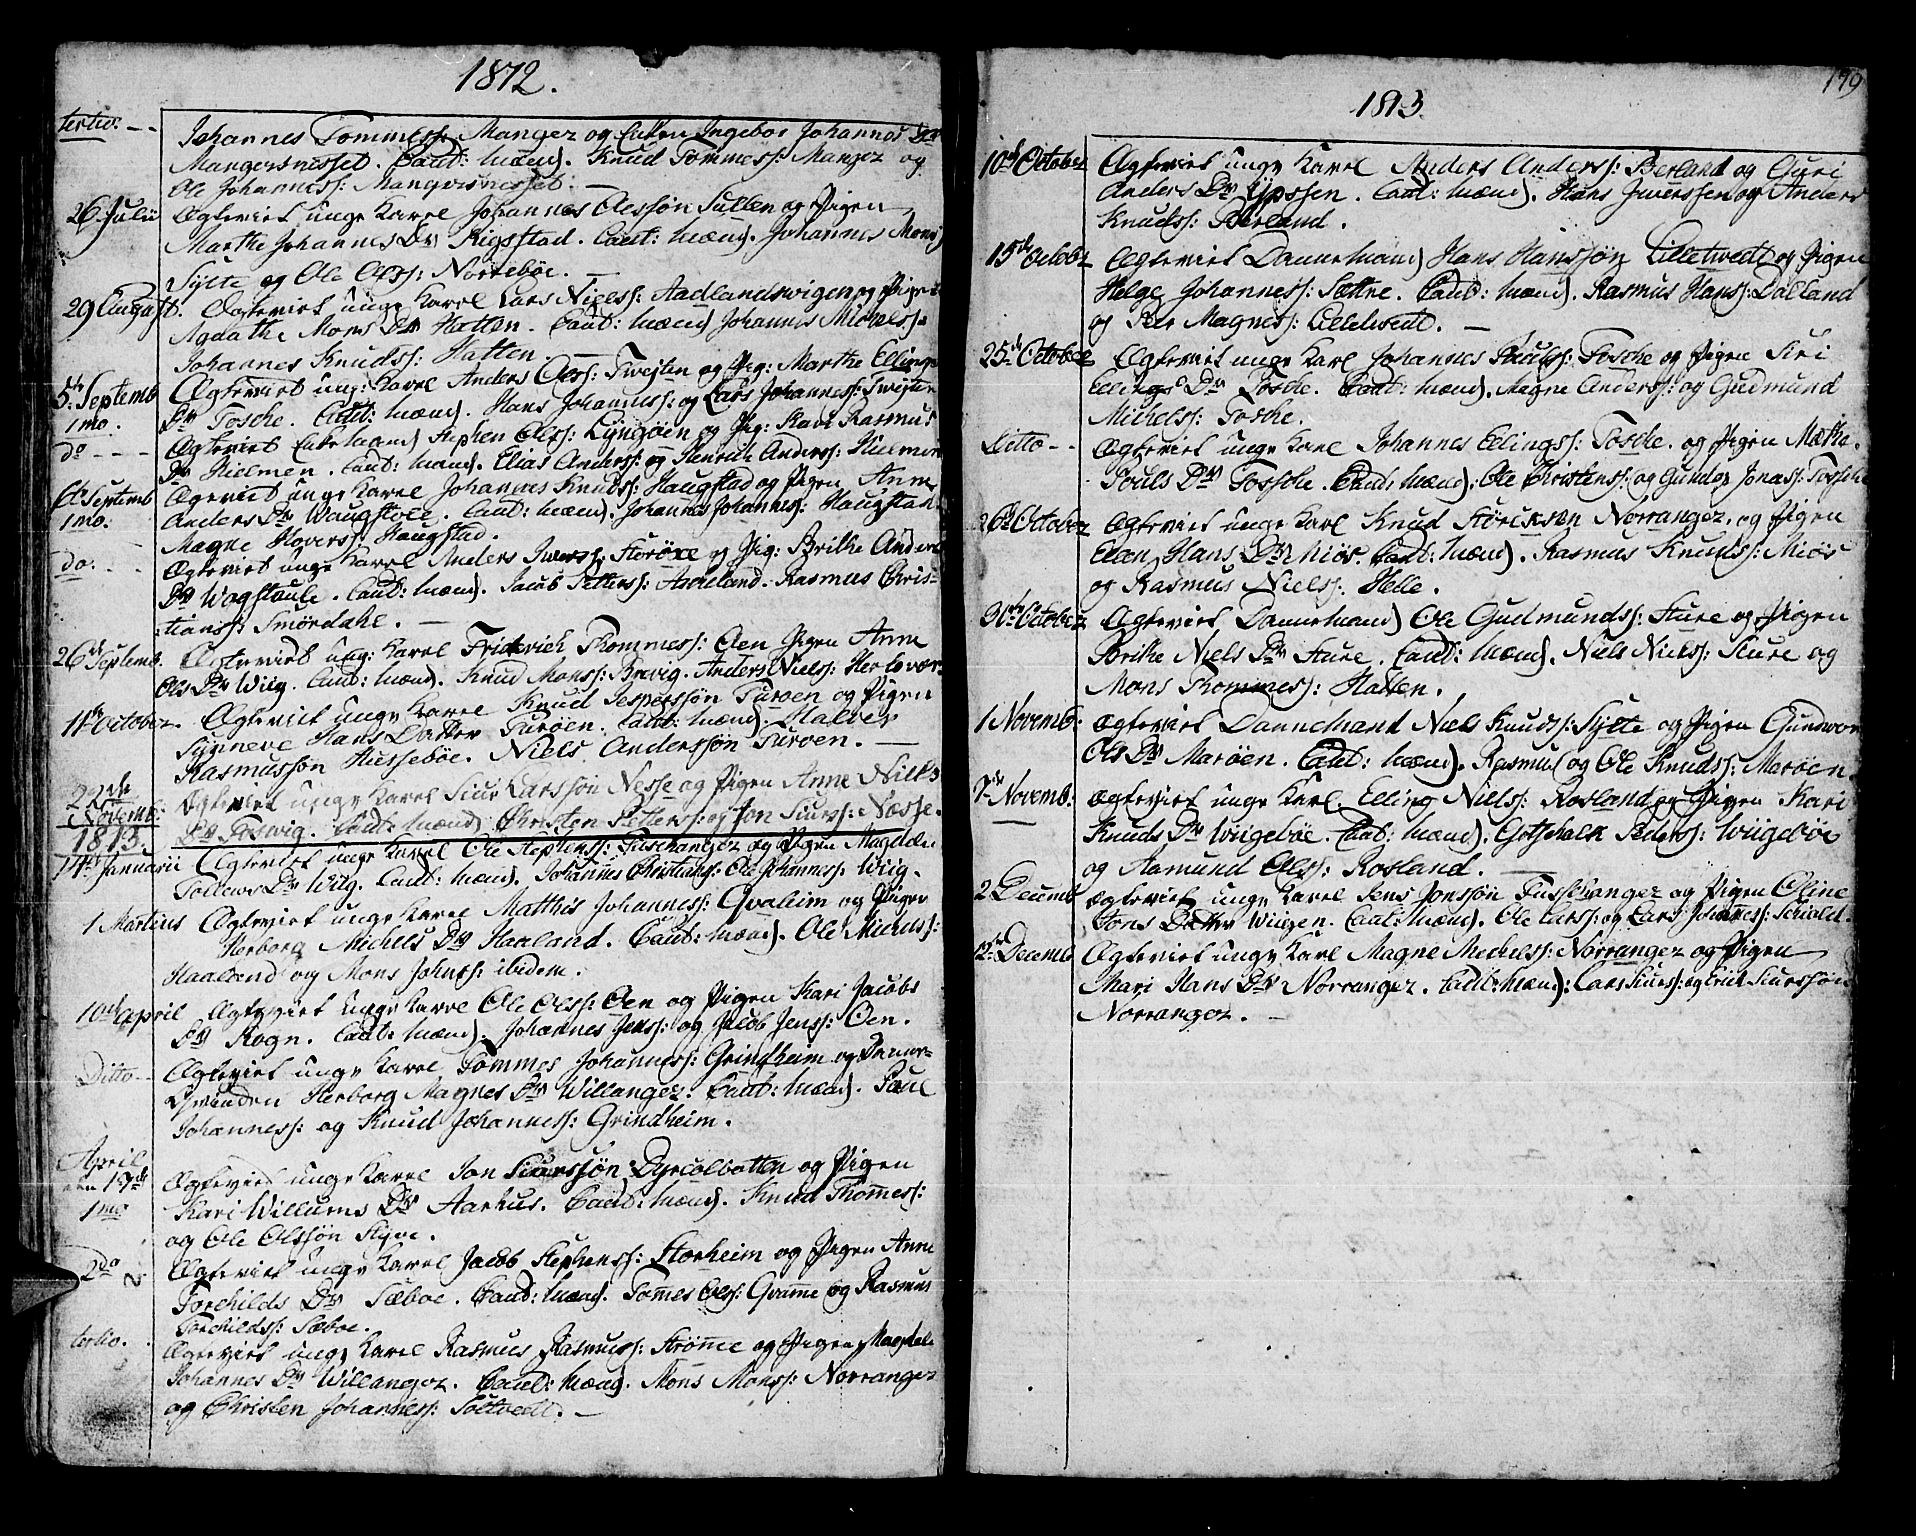 1812.
tertio. Johannes Tommess: Manger og Enken Ingebor Johannes Dr
Mangersnesset. Caut: Mænd. Knud Tommess: Manger og
Ole Johanness: Mangersnesset.
26 Julii Ægteviet unge Karel Johannes Olessøn Sulten og Pigen
Marthe Johannes Dr Rigsstad. Caut: Mænd. Johannes Mons
Sylte og Ole Olss: Norrebøe.
29 August. Ægteviet unge Karel Lars Nielss: Aadlandswigen og Pigen
Agathe Mons Dr Hatten. Caut: Mænd Johannes Michelss:
Johannes Knudss: Hatten.
5te Septemb Ægteviet ung: Karel Anders Olss: Twejten og Pig: Marthe Ellings
1mo. Dr Tosche. Caut: Mænd. Hans Johanness: og Lars Johanness: Twejten
do Ægteviet Enkemand Stephen Olss: Lyngøen og Pig: Kari Rasmus
Dr Hielmen. Caut: Mænd. Elias Anderss: og Henrik Anderss: Hielmen
6te Septemb Ægteviet unge Karel Johannes Knudss: Haugstad og Pigen Anne
1mo. Anders Dr Waugstole. Caut: Mænd. Johannes Johanness: Haugstad
Magne Hoverss: Haugstad.
do. Ægteviet unge Karel Anders Iwerss: Storøxe og Pig: Brithe Anders
Dr Wogstoule. Caut: Mænd. Jacob Petterss: Aaneland. Rasmus Chris-
tianss: Smørdahl.
26de Septemb. Ægteviet ung: Karel Friderich Thommess: Øen Pigen Anne
Ols Dr Wiig. Caut: Mænd. Knud Monss: Brevig. Anders Nielss: Herlevær
11te October Ægteviet unge Karel Knud Jesperssøn Turøen og Pigen
Synneve Hans Datter Turøen. Caut: Mænd. Halver
Rasmussøn Hussebøe. Niels Anderssøn Turøen.
22de Novemb: Ægteviet unge Karel Siur Larssøn Nesse og Pigen Anne Niels
Dr Toswig. Caut: Mænd. Christen Petters: og Jon Siurss: Næsse.
1813.
14de Januarii Ægteviet unge Karel Ole Stephenss: Fuschanger og Pigen Magdalen
Tollews Dr Wiig. Caut: Mænd. Johannes Christians: Ole Johanness: Wiig.
1 Martius Ægteviet unge Karel Matthis Johanness: Qvalim og Pigen
Herborg Michels Dr Haaland. Caut: Mænd. Ole Michelss:
Haaland og Mons Johnss: ibidem.
10de April Ægteviet unge Karel Ole Olss: Øen og Pigen Kari Jacobs
Dr Rogn. Caut: Mænd. Johannes Jenss: og Jacob Jenss: Øen.
Ditto Ægteviet unge Karel Tommes Johanness: Grindheim og Danne-
Qvinden Herborg Magnes Dr Willanger. Caut: Mænd. Poul
Johanness: og Knud Johanness: Grindheim.
April
den 19de Ægtevied unge Karel Jon Siurssøn Dyrcolbotten og Pigen
1mo Kari Willums Dr Aarhus. Caut: Mænd. Knud Thommess:
og Ole Olssøn Kyve.
2do Ægteviet unge Karel Jacob Stephenss: Storheim og Pigen Anne
Torchilds Dr Sæboe. Caut: Mænd. Tommes Olss: Qvamme og Rasmus
Torchildss: Sæboe.
tertio. Ægteviet unge Karel Rasmus Rasmuss: Strømme og Pigen Magdele
Johannes Dr Willanger. Caut: Mænd. Mons Monss: Norranger
og Christen Johanness: Toltvedt.
179
1813.
10de October Ægteviet unge Karel Anders Anderss: Berland og Guri
Anders Dr Ypssen. Caut: Mænd. Hans Iwerssen og Anders
Knudss: Berland.
15de October Ægteviet Dannemand Hans Hanssøn Lilletwedt og Pigen
Helge Johanness: Sættre. Caut: Mænd. Rasmus Hanss: Dalland
og Per Magness: Lilletwedt.
25de October Ægteviet unge Karl Johannes Poulss: Tosche og Pigen Siri
Ellings Dr Tosche. Caut: Mænd. Magne Anderss: og Gudmund
Michelss: Tosche.
Ditto Ægteviet unge Karel Johannes Ellingss: Tosche. og Pigen Mætha
Pouls Dr Tossche. Caut: Mænd. Ole Christenss: og Gunder Jonass: Tossche
26de October Ægteviet unge Karl Knud Størcksen Norranger. og Pigen
Elan Hans Dr Miøs. Caut: Mænd. Rasmus Knudss: Miøs
og Rasmus Nielss: Helle.
31te October Ægteviet Dannemand Ole Gudmundss: Sture og Pigen
Brithe Niels Dr Sture. Caut: Mænd. Niels Nielss: Sture og
Mons Thommess: Hatten.
1 Novemb: Ægteviet Dannemand Niels Knudss: Sylte og Pigen Gundwor
Ols Dr Marøen. Caut: Mænd. Rasmus og Ole Knudss: Marøen.
7de Novemb: Ægteviet unge Karl. Elling Nielss: Rosland og Pigen Kari
Knuds Dr Wiigebøe. Caut: Mænd. Gotschalk Pederss: Wiigebøe
og Aamund Olss: Rosland.
2 Decemb Ægteviet unge Karel Jens Jonssøn Fusschanger og Pigen Oline
Jons Datter Wiigen. Caut: Mænd. Ole Larss: og Lars Johanness: Schiold.
12te Decemb Ægteviet unge Karl Magne Michelss: Norranger og Pigen
Mari Hans Dr Norranger. Caut: Mænd: Lars Siurss: og Erick Siurssøn
Norranger.